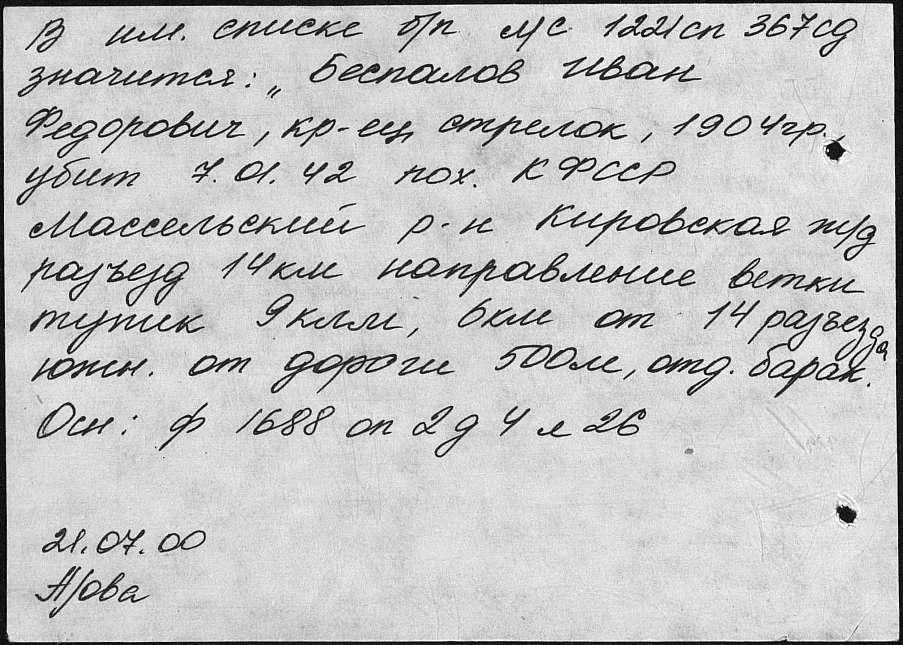 В им. списке б/п м/с 1221сп 367сд
значится: „ Беспалов Иван
Федорович, кр-ец стрелок, 1904гр.,
убит 7.01.42 пох. КФССР
Массельский р-н Кировская ж/д
разъезд 14км направление ветки
тупик 9клм, 6км от 14 разъезда
южн. от дороги 500м, отд. барак.
Осн: ф 1688 оп 2 д 4 л 26
21.07.00